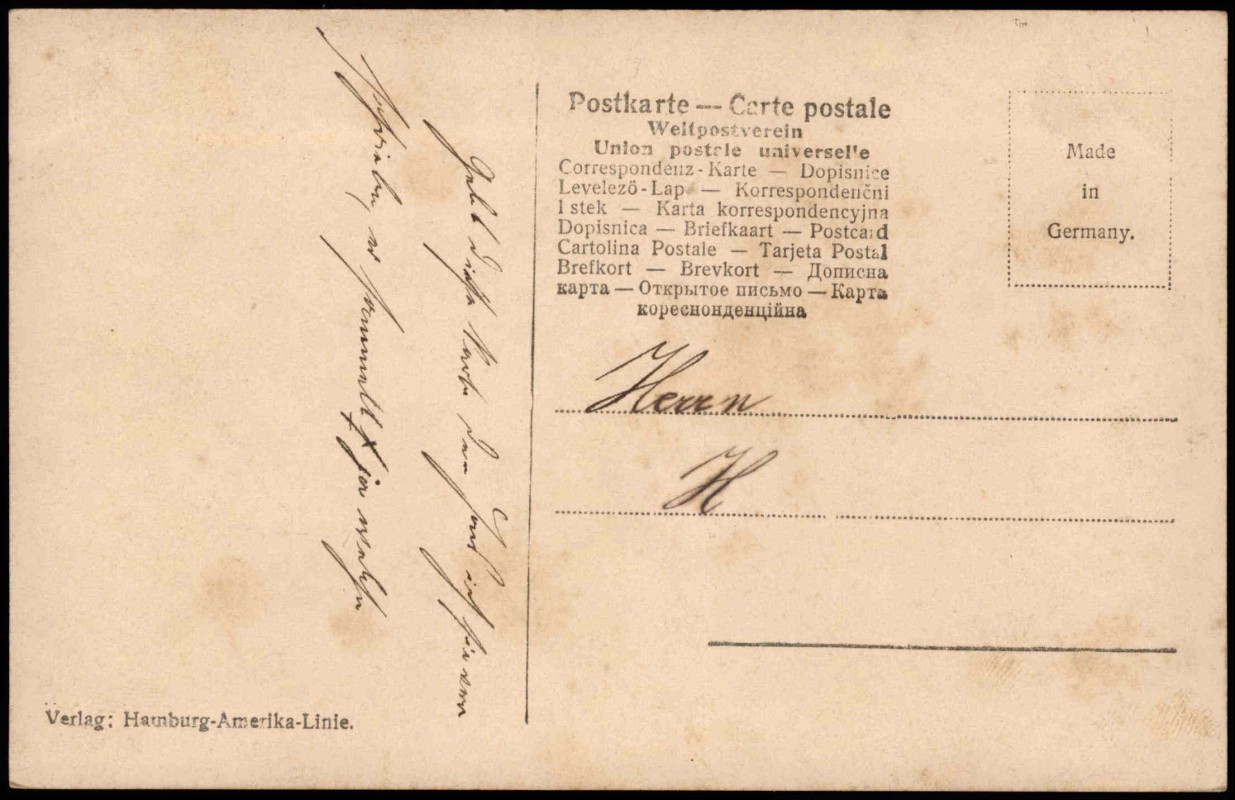 Gebt diese Karte den
er sammelt sie
Postkarte — Carte postale
Weltpostverein
Union postale universelle
Correspondenz-Karte — Dopisnice
Levelező-Lap — Korrespondenční
lístek — Karta korrespondencyjna
Dopisnica — Briefkaart — Postcard
Cartolina Postale — Tarjeta Postal
Brefkort — Brevkort — Дописна
карта — Открытое письмо — Карта
кореспонденційна
Made
in
Germany.
Herrn
H
Verlag: Hamburg-Amerika-Linie.